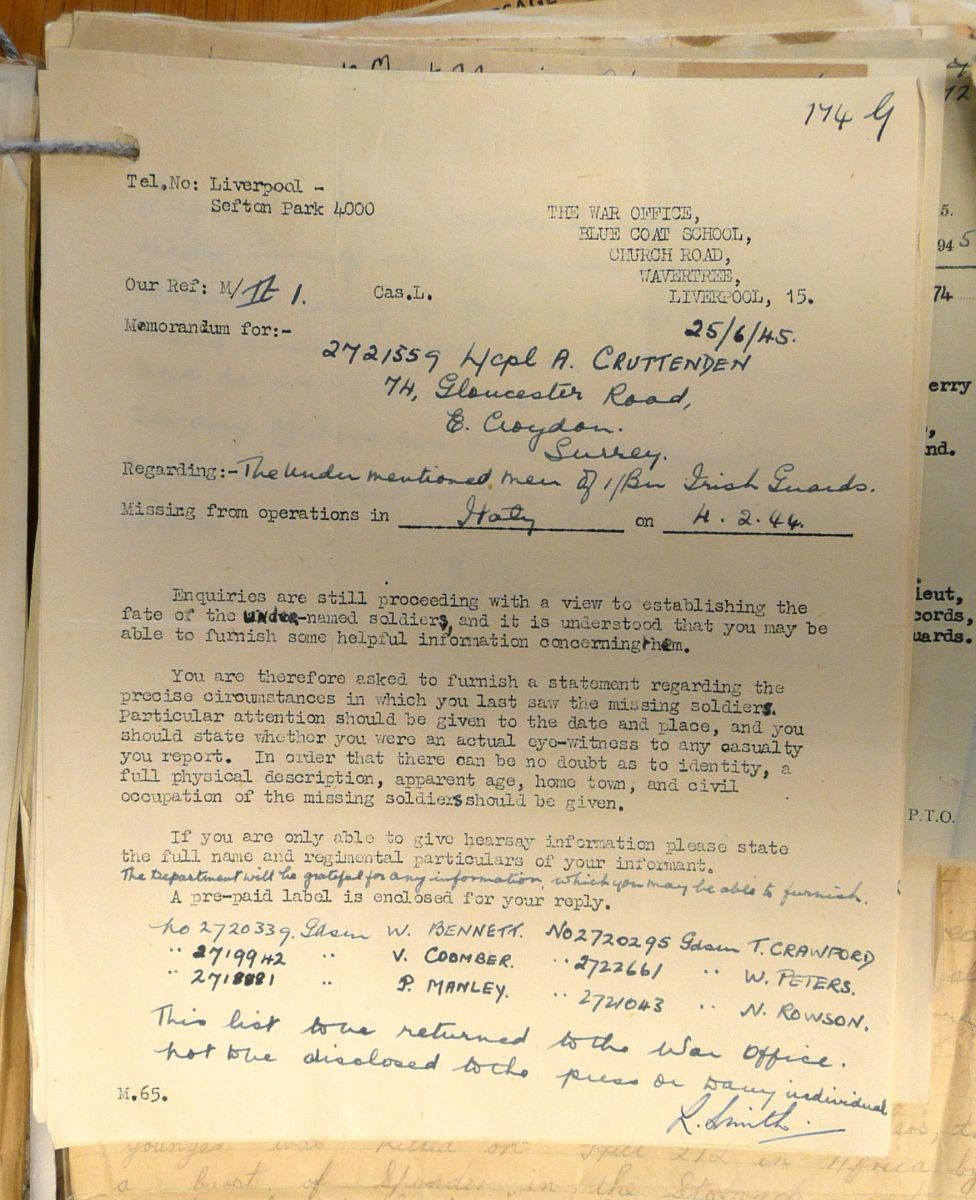 174 G
Tel.No: Liverpool -
Sefton Park 4000
THE WAR OFFICE,
BLUE COAT SCHOOL,
CHURCH ROAD,
WAVERTREE,
LIVERPOOL, 15.
Our Ref: M/II 1.
Cas.L.
25/6/45.
Memorandum for:-
2721559 L/cpl A. CRUTTENDEN
74, Gloucester Road,
E. Croydon.
Surrey.
Regarding:- The under mentioned men of 1/Bn Irish Guards.
Missing from operations in Italy on 4.2.44.
Enquiries are still proceeding with a view to establishing the
fate of the under-named soldiers, and it is understood that you may be
able to furnish some helpful information concerning them.
You are therefore asked to furnish a statement regarding the
precise circumstances in which you last saw the missing soldiers.
Particular attention should be given to the date and place, and you
should state whether you were an actual eye-witness to any casualty
you report. In order that there can be no doubt as to identity, a
full physical description, apparent age, home town, and civil
occupation of the missing soldiers should be given.
If you are only able to give hearsay information please state
the full name and regimental particulars of your informant.
The Department will be grateful for any information, which you may be able to furnish.
A pre-paid label is enclosed for your reply.
No 2720339. Gdsm W. BENNETT. No 2720295 Gdsm T. CRAWFORD
" 2719942 " V. COOMBER. " 2722661 " W. PETERS.
" 2718881 " P. MANLEY. " 2721043 " N. ROWSON.
This list to be returned to the War Office.
not to be disclosed to the press or to any individual
L. Smith.
M.65.
5.
945
74
erry
nd.
ieut,
cords,
uards.
P.T.O.
younger was killed on Hill 212 in Africa by
a burst of Spandau in the Stomach